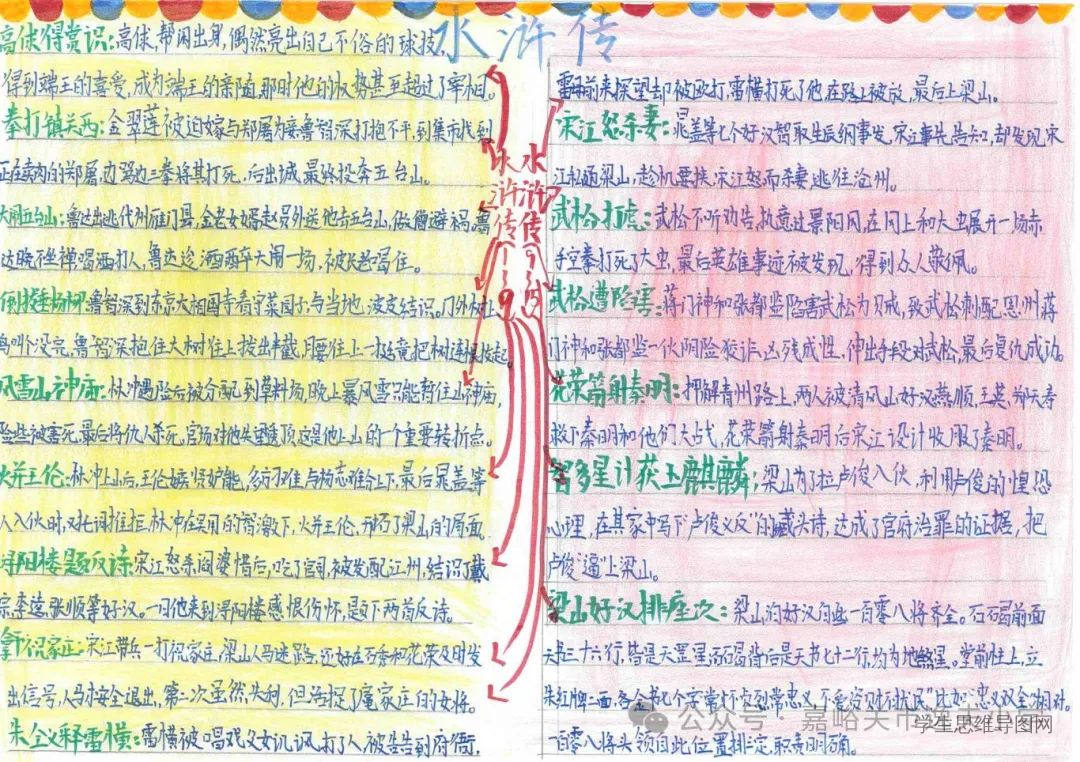 水浒传
高俅得赏识:高俅,帮闲出身,偶然亮出自己不俗的球技,
得到端王的喜爱,成为端王的亲随,那时他的权势甚至超过了宰相。
拳打镇关西:金翠莲被迫嫁与郑屠为妾,鲁智深打抱不平,到集市找到
正在卖肉的郑屠,边骂边三拳将其打死,后出城,最终投奔五台山。
大闹五台山:鲁达出逃代州雁门县,金老女婿赵员外送他去五台山,做僧避祸,鲁
达晚不坐禅喝酒打人,鲁达讼洒西醉大闹一场,被长老喝住。
倒拔垂杨柳:鲁智深到东京大相国寺看守菜园子,与当地泼皮结识。门外树上
鸟叫个没完,鲁智深抱住大树往上拔出半截,腰往上一挺竟把树连根拔起。
风雪山神庙:林冲遇险后被分配到草料场,晚上暴风雪只能暂住山神庙,
险些被害死,最后将仇人杀死,官场对他失望透顶这是他上山的一个重要转折点。
火并王伦:林冲上山后,王伦嫉贤妒能,多方刁难与杨志难分上下,最后晁盖等
人入伙时,对托谢推拒,林冲在吴用的智激下,火并王伦,开拓了梁山的局面
浔阳楼题反诗:宋江怒杀阎婆惜后,吃了官司,被发配江州,结识了戴
宗,李逵,张顺等好汉。一日他来到浔阳楼感恨伤怀,题下两首反诗。
拿下祝家庄:宋江带兵一打祝家庄,梁山人马迷路,还好在石秀和花荣及时发
出信号,人马才安全退出,第二次虽然失利,但活捉了扈家庄的女将。
朱仝义释雷横:雷横被唱戏父女讥讽,打了人,被告到府衙,
水浒传(1-9
水浒传(9-15
雷母前来探望却被欧打,雷横打死了他在路上被放,最后上梁山。
宋江怒杀妻:晁盖等七个好汉智取生辰纲事发,宋江事先告知,却发现宋
江私通梁山,趁机要挟,宋江怒而杀妻,逃往沧州。
武松打虎:武松不听劝告,执意过景阳冈,在冈上和大虫展开一场,赤
手空拳打死了大虫,最后英雄事迹被发现,得到众人敬佩。
武松遭陷害:蒋门神和张都监陷害武松为贼,致武松刺配恩州,蒋
门神和张都监一伙阴险狡诈,凶残成性,伸出手段对武松,最后复仇成功。
花荣箭射秦明:押解青州路上,两人被清风山好汉燕顺,王英,郑天寿
救下秦明和他们大战,花荣箭射秦明后宋江设计收服了秦明。
智多星计获玉麒麟:梁山为了拉卢俊入伙,利用卢俊的惶恐
心理,在其家中写下“卢俊义反”的藏头诗,达成了官府治罪的证据,把
卢俊“逼”上梁山。
梁山好汉排座次:梁山泊好汉自此一百零八将齐全。石碣前面
天书三十六行,皆是天罡星,石碣背后是天书七十二行,均为地煞星。堂前柱上,立
朱红牌二面,各金书七个字“常怀贞烈常忠义,不爱资财不扰民”比如“忠义双全”相对
一百零八将头领自此位置排定,职责明确。
公众号·嘉峪关市
学生思维导图网